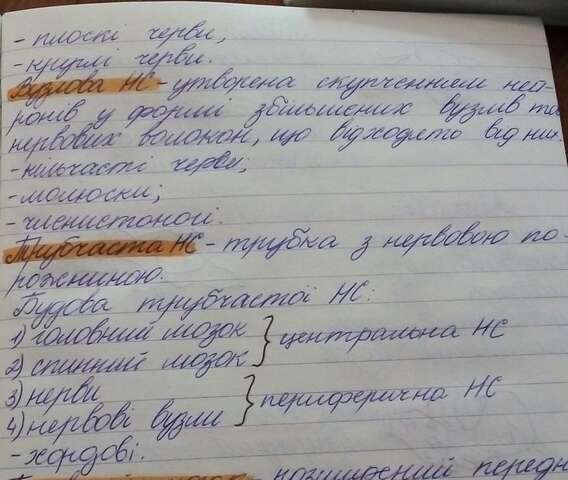 - плоскі черви,
- круглі черви.
Вузлова НС - утворена скупченням ней-
ронів у формі збільшених вузлів та
нервових волокон, що відходять від них.
- кільчасті черви;
- молюски;
- членистоногі.
Трубчаста НС - трубка з нервовою по-
рожниною.
Будова трубчастої НС:
1) головний мозок
2) спинний мозок } центральна НС
3) нерви
4) нервові вузли } периферична НС
- хордові.
- розширений передн